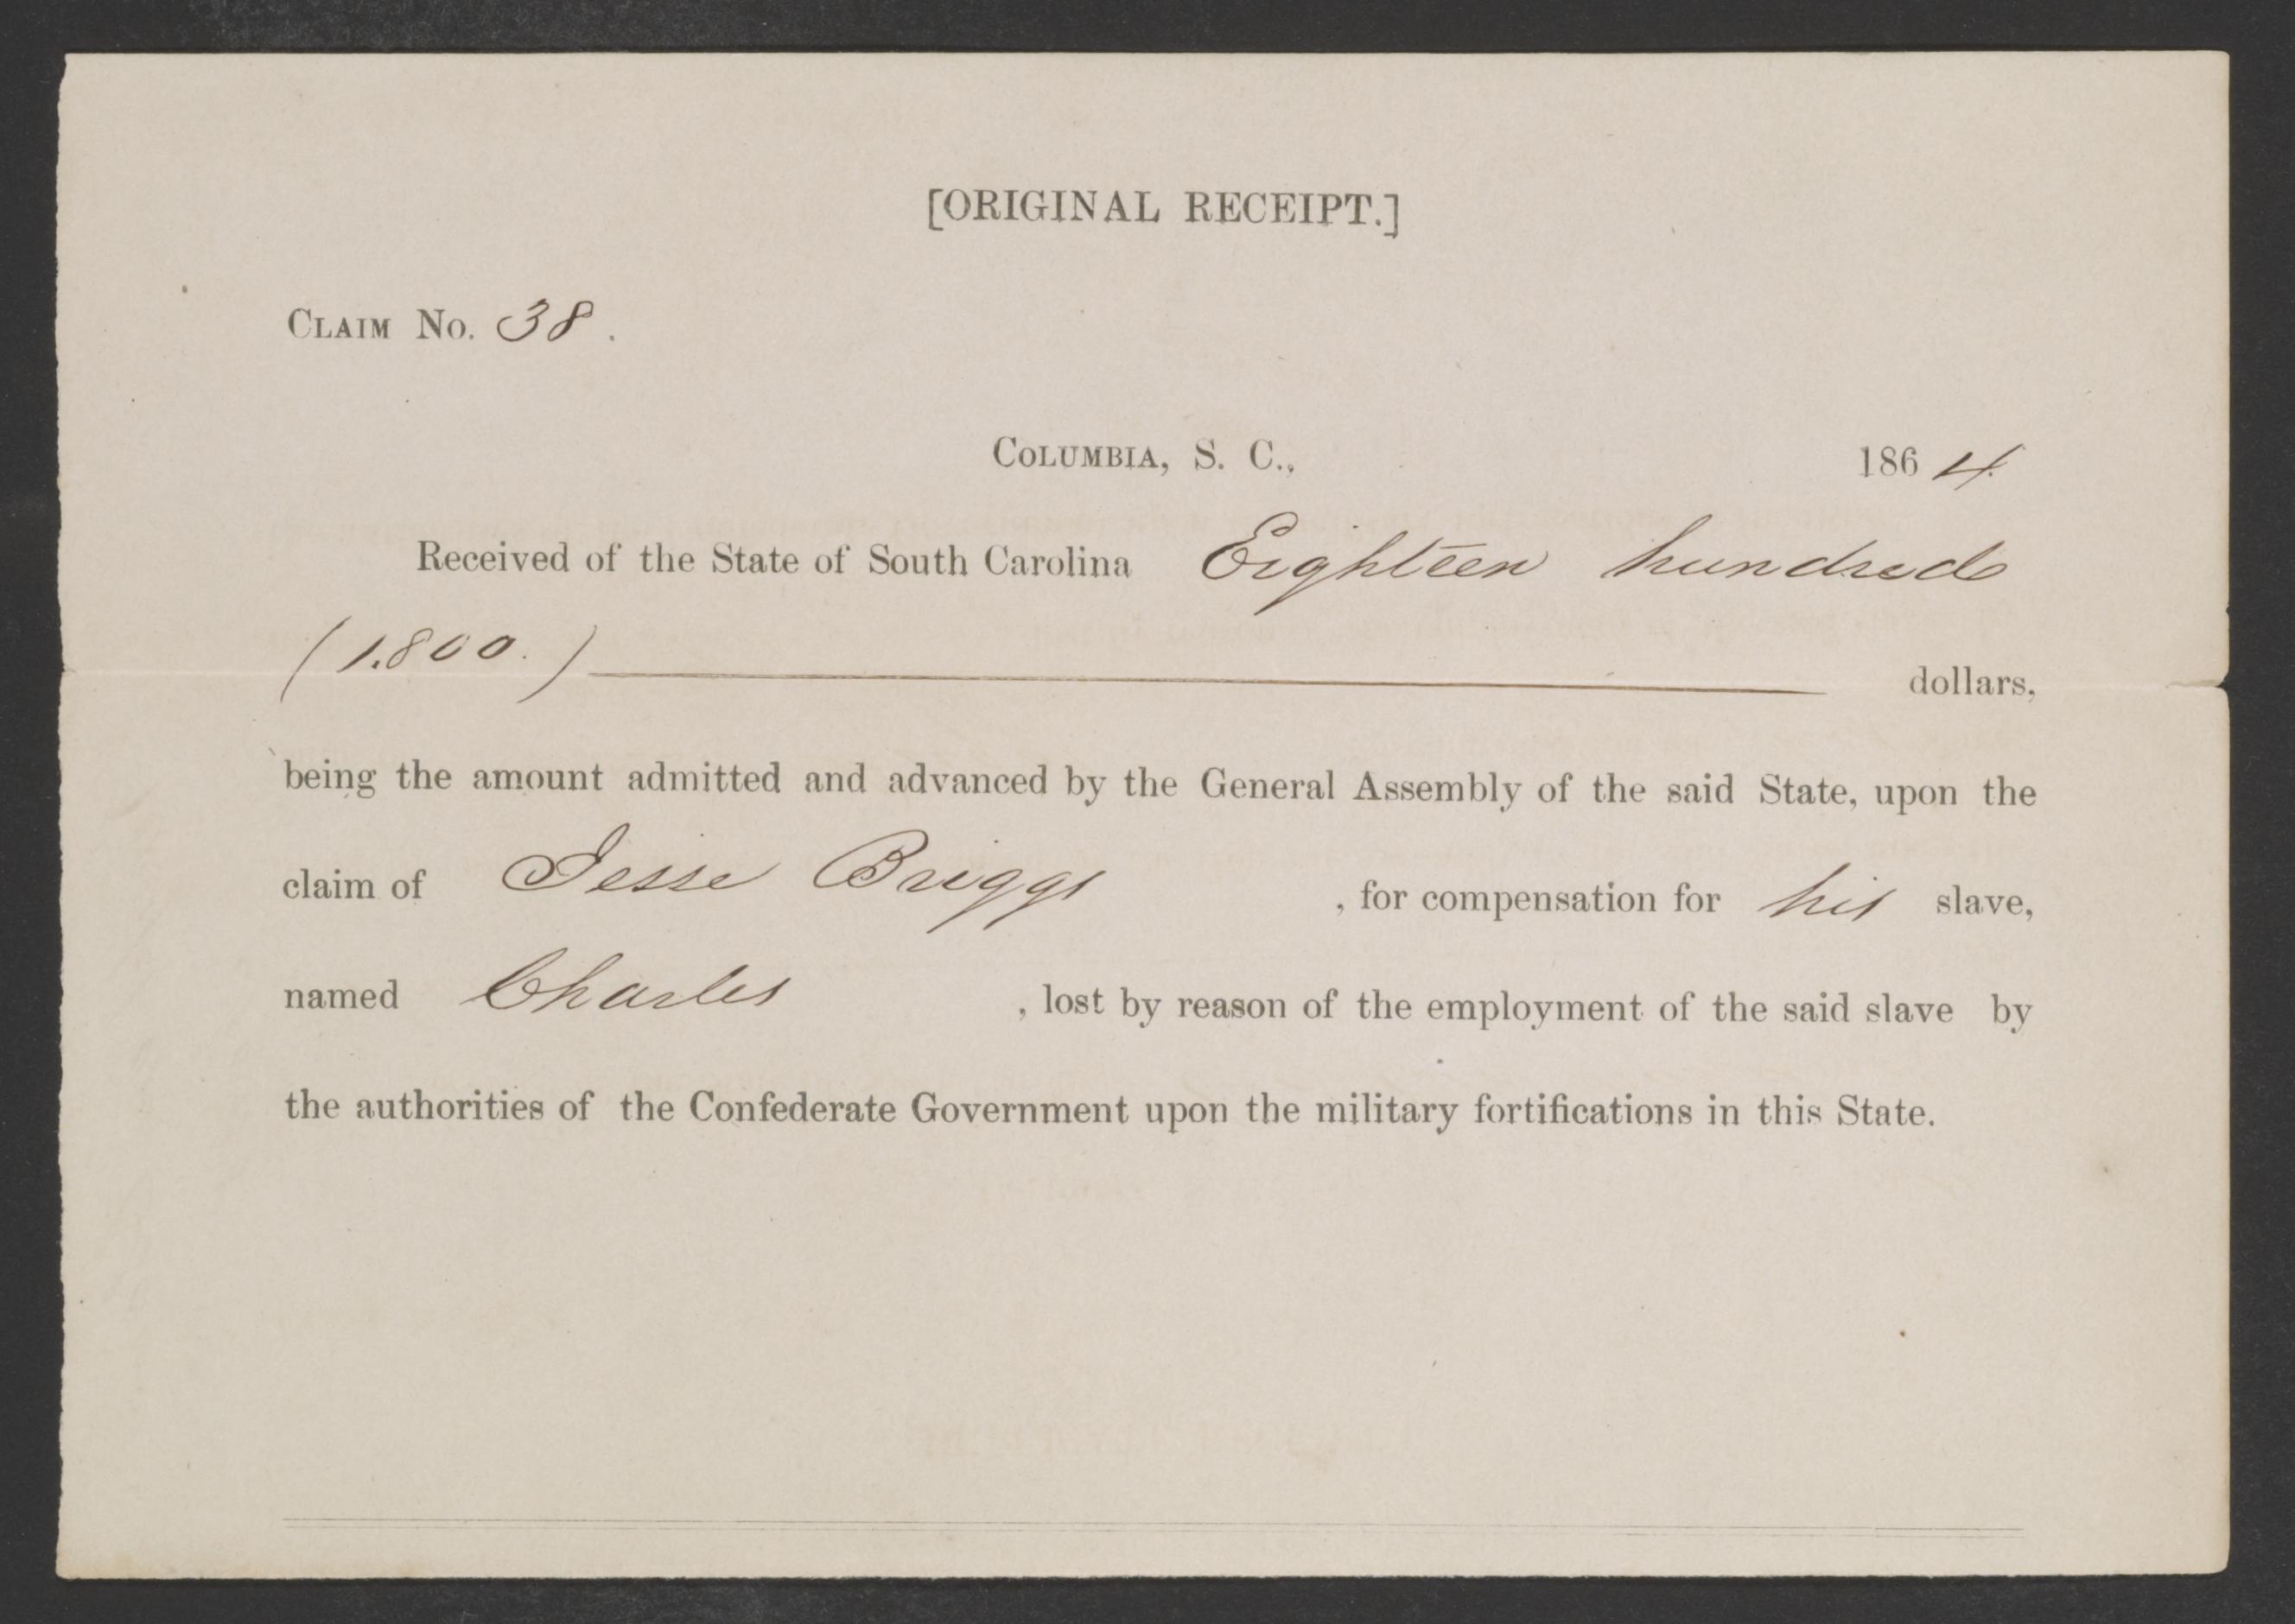 [ORIGINAL RECEIPT.]
CLAIM No. 38.
COLUMBIA, S. C., 1864.
Received of the State of South Carolina Eighteen hundred
(1.800.) dollars,
being the amount admitted and advanced by the General Assembly of the said State, upon the
claim of Jesse Briggs, for compensation for his slave,
named Charles, lost by reason of the employment of the said slave by
the authorities of the Confederate Government upon the military fortifications in this State.